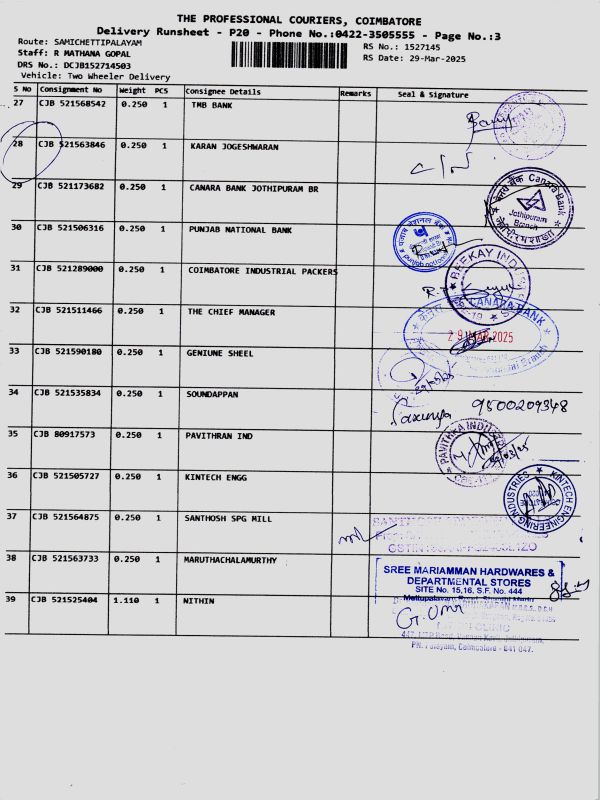 THE PROFESSIONAL COURIERS, COIMBATORE
Delivery Runsheet - P20 - Phone No.:0422-3505555 - Page No.:3
Route: SAMICHETTIPALAYAM
RS No.: 1527145
Staff: R MATHANA GOPAL
RS Date: 29-Mar-2025
DRS No.: DCJB152714503
Vehicle: Two Wheeler Delivery
S No Consignment No Weight PCS Consignee Details Remarks Seal & Signature
27 CJB 521568542 0.250 1 TMB BANK
28 CJB 521563846 0.250 1 KARAN JOGESHWARAN
29 CJB 521173682 0.250 1 CANARA BANK JOTHIPURAM BR
Canara Bank
Jothipuram
Branch
30 CJB 521506316 0.250 1 PUNJAB NATIONAL BANK
31 CJB 521289000 0.250 1 COIMBATORE INDUSTRIAL PACKERS
BEEKAY
32 CJB 521511466 0.250 1 THE CHIEF MANAGER
CANARA BANK
29 MAR 2025
33 CJB 521590180 0.250 1 GENIUNE SHEEL
34 CJB 521535834 0.250 1 SOUNDAPPAN
9500209348
35 CJB 80917573 0.250 1 PAVITHRAN IND
36 CJB 521505727 0.250 1 KINTECH ENGG
KINTECH ENGINEERING INDUSTRIES
37 CJB 521564875 0.250 1 SANTHOSH SPG MILL
38 CJB 521563733 0.250 1 MARUTHACHALAMURTHY
SREE MARIAMMAN HARDWARES &
DEPARTMENTAL STORES
SITE No. 15,16. S.F. No. 444
39 CJB 521525404 1.110 1 NITHIN
CLINIC
P.N. Palayam, Coimbatore - 641 047.